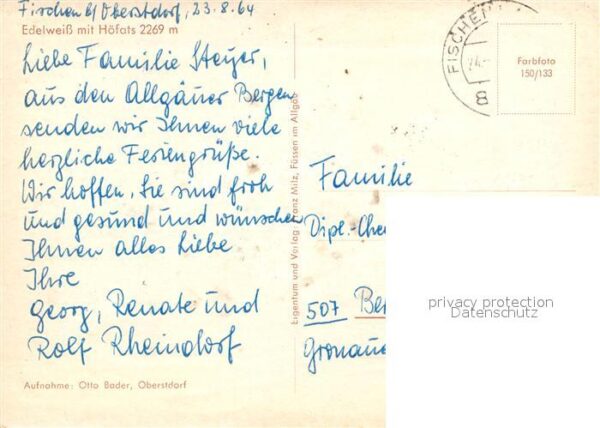 Fischen b/Oberstdorf, 23.8.64
Edelweiß mit Höfats 2269 m
Liebe Familie Steyer,
aus den Allgäuer Bergen
senden wir Ihnen viele
herzliche Feriengrüße.
Wir hoffen, Sie sind froh
und gesund und wünschen
Ihnen alles Liebe
Ihre
Georg, Renate und
Rolf Rheindorf
Aufnahme: Otto Bader, Oberstdorf
Eigentum und Verlag Franz Milz, Füssen im Allgäu
FISCHEN
8
Farbfoto
150/133
Familie
Dipl.-Che
507 Be
Gronau
privacy protection
Datenschutz